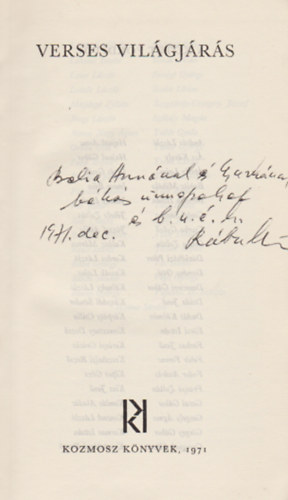 VERSES VILÁGJÁRÁS
Balia Annának és Gyurkának
békés ünnepeket
és b. u. é. k.
1971. dec.
KOZMOSZ KÖNYVEK, 1971